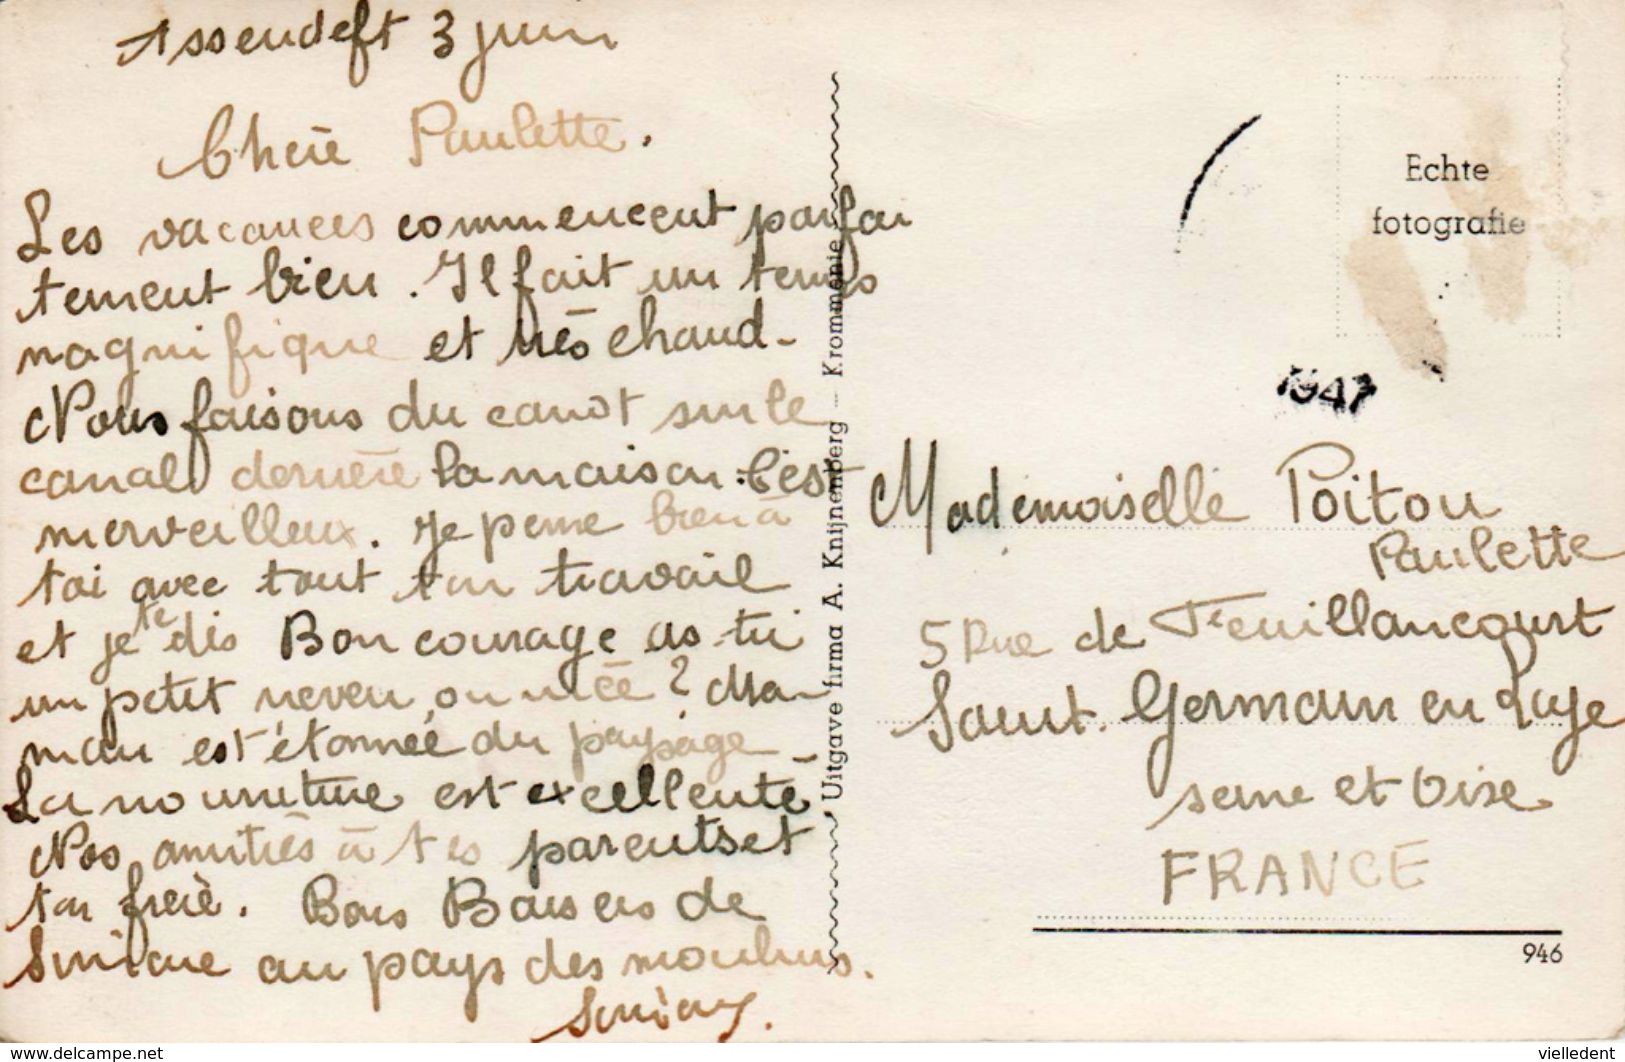 Assendelft 3 juin
Chère Paulette.
Les vacances commencent parfai
tement bien. Il fait un temps
magnifique et très chaud-
Nous faisons du canot sur le
canal derrière la maison. C'est
merveilleux. Je pense bien à
toi avec tout ton travail
et je te dis Bon courage as-tu
un petit neveu, ou nièce? Ma-
man est étonnée du paysage-
La nourriture est excellente
Nos amitiés à tes parents et
ton frère. Bons Baisers de
au pays des moulins.
Uitgave firma A. Knijnenberg — Krommenie
Echte
fotografie
1947
Mademoiselle Poitou
Paulette
5 Rue de Feuillancourt
Saint. Germain en Laye
seine et Oise
FRANCE
946
www.delcampe.net
vielledent